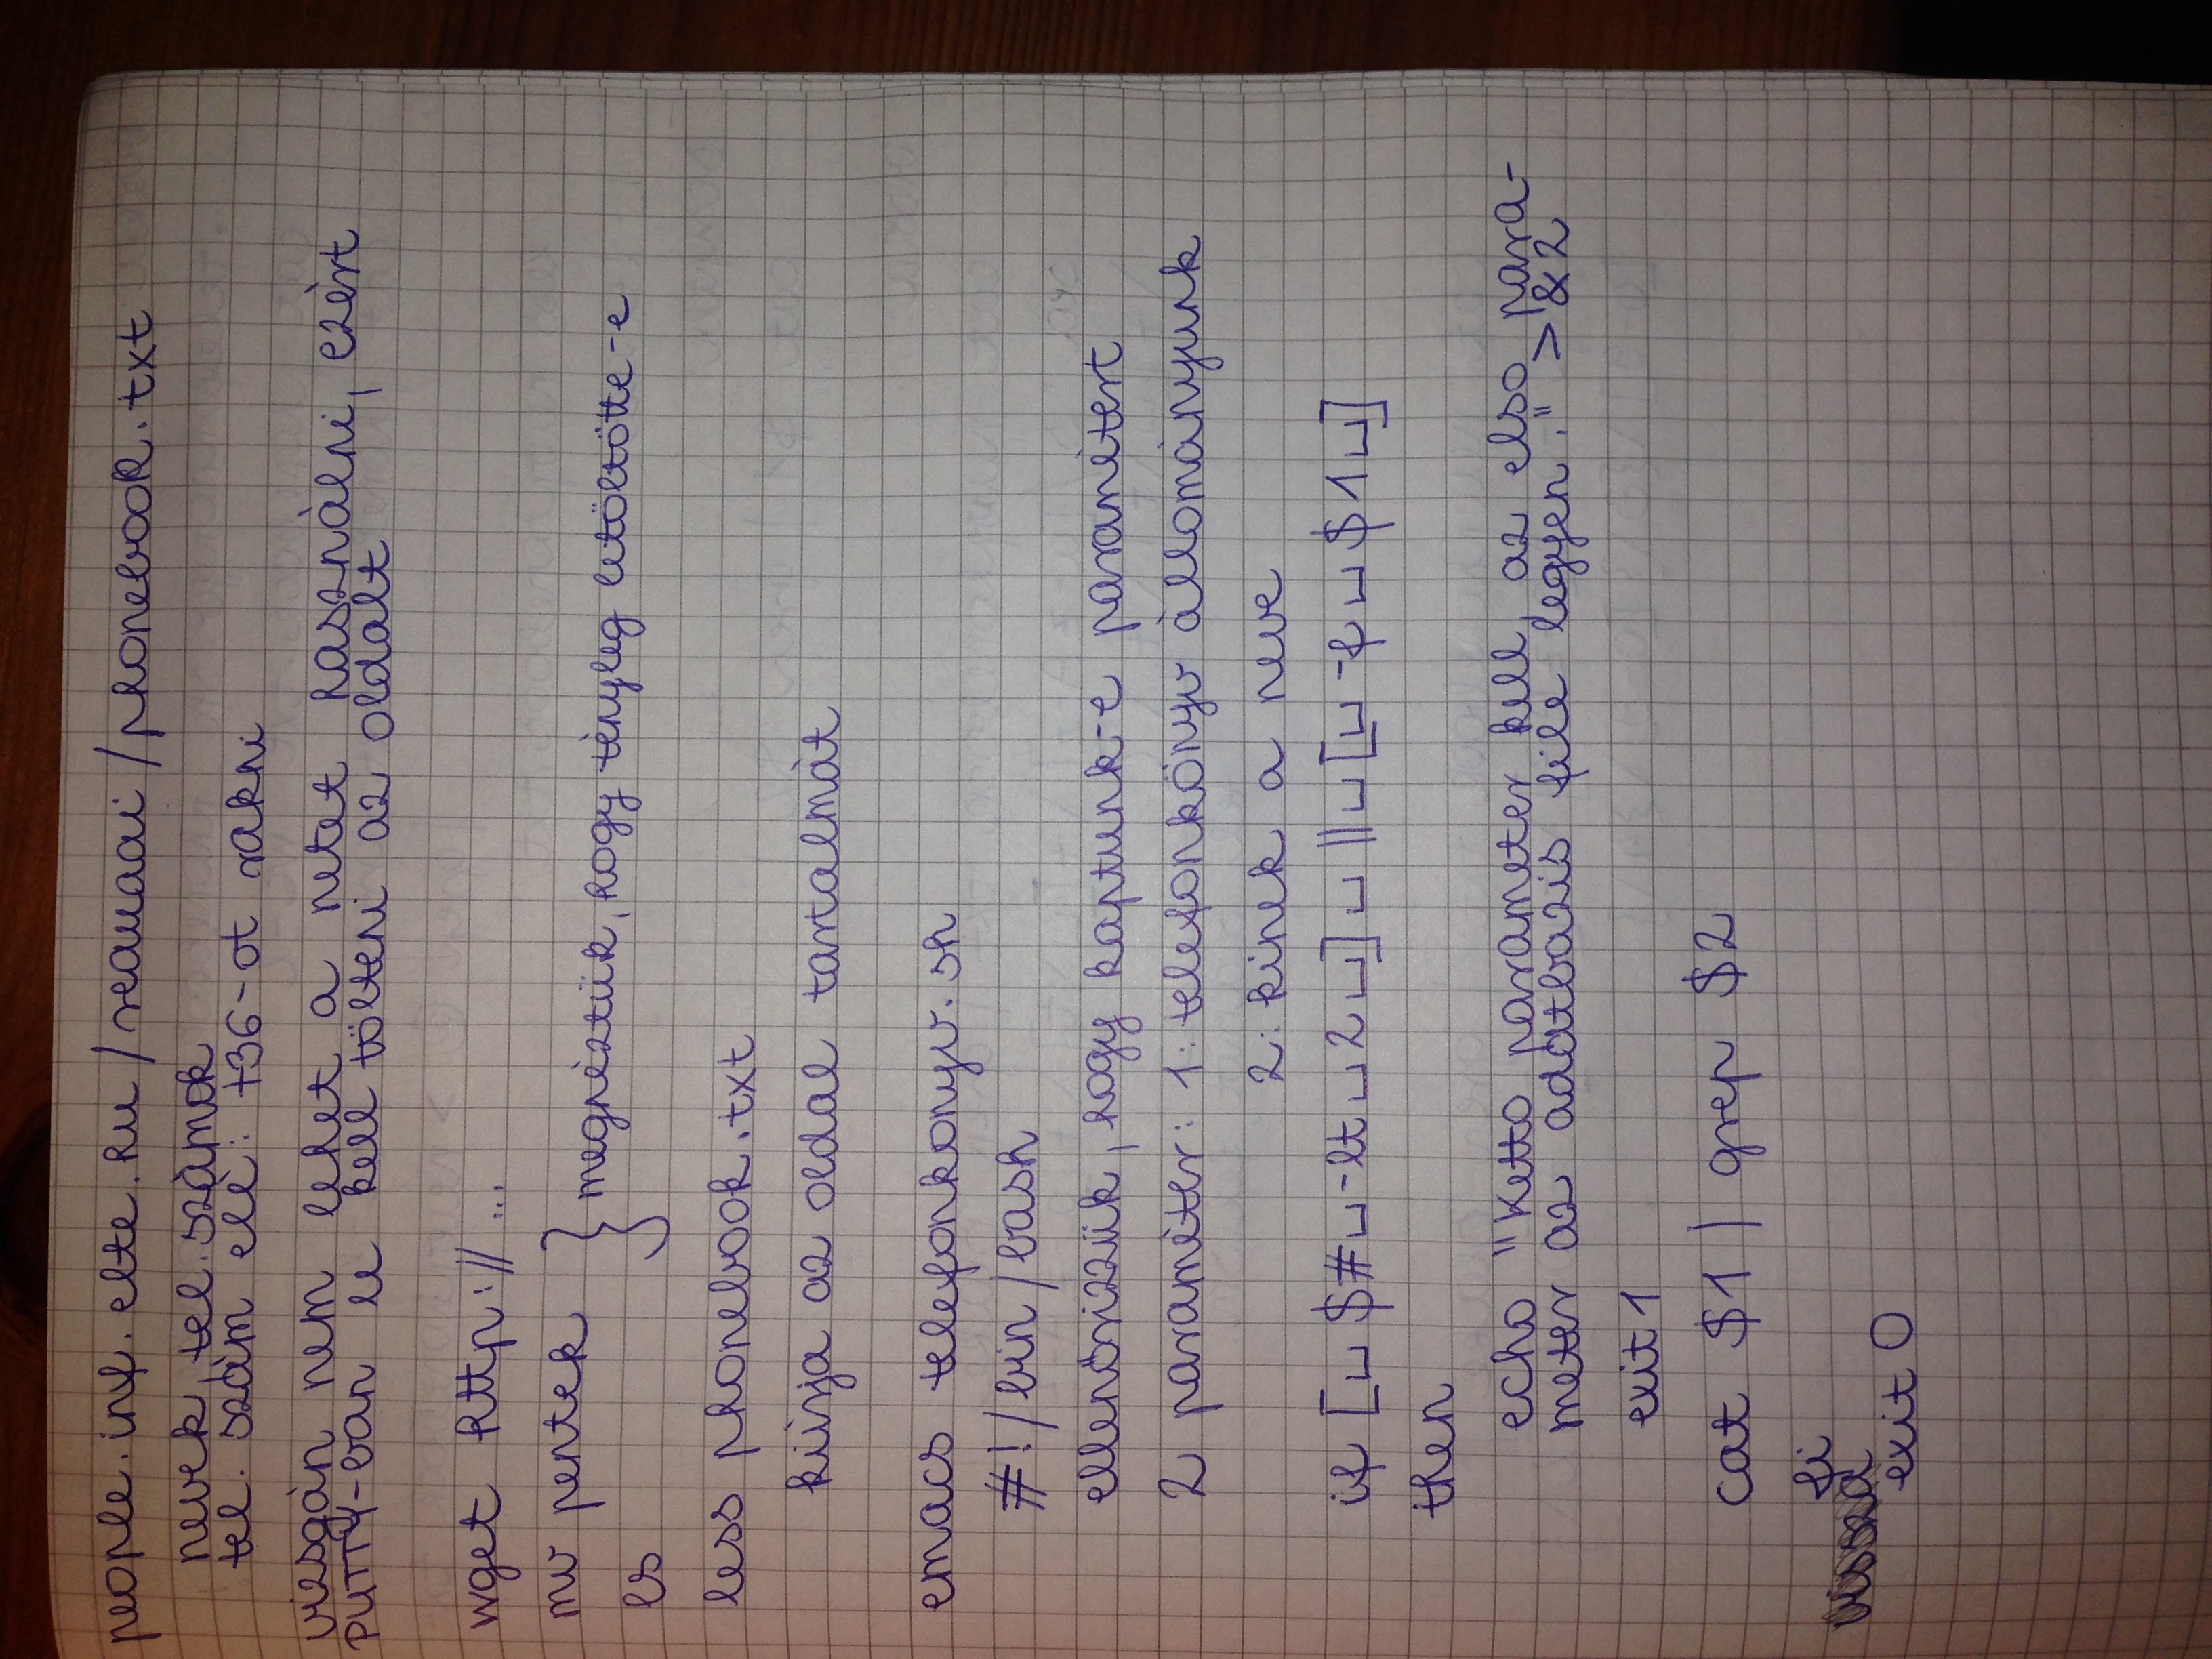 people.inf.elte.hu/ /phonebook.txt
nevek, tel. számok
tel. szám elé: +36-ot rakni
vizsgán nem lehet a netet használni, ezért
PUTTY-ban le kell tölteni az oldalt
wget http://...
mv pentek
ls
megnéztük, hogy tényleg letöltötte-e
less phonebook.txt
kiírja az oldal tartalmát
emacs telefonkonyv.sh
#!/bin/bash
ellenőrizzük, hogy kaptunk-e paramétert
2 paraméter: 1: telefonkönyv állományunk
2: kinek a neve
if [␣$#␣-lt␣2␣]␣||␣[␣-f␣$1␣]
then
echo "Ketto parameter kell, az elso para-
meter az adatbazis file legyen." >&2
exit 1
cat $1 | grep $2
fi
vissza
exit 0